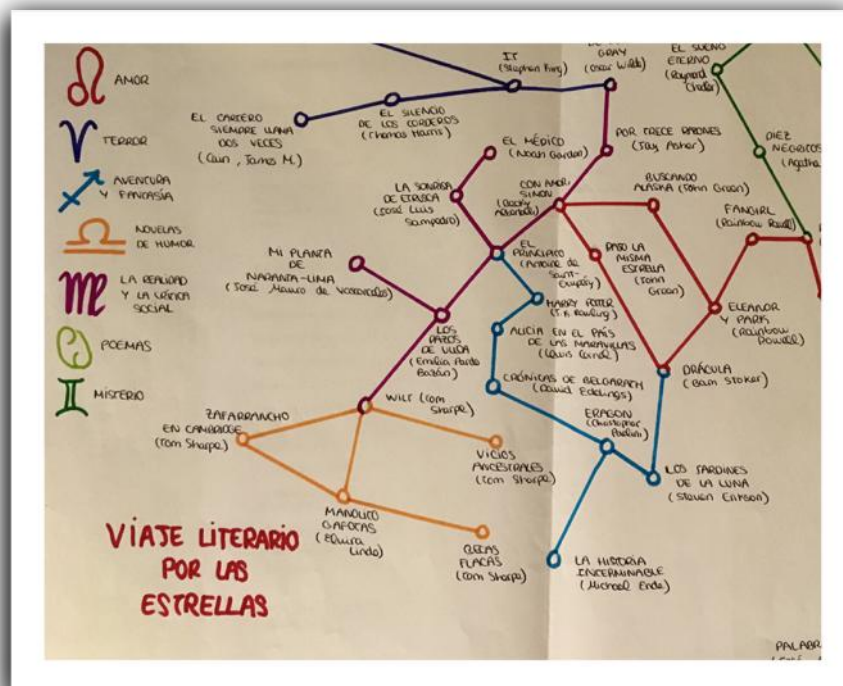 AMOR
TERROR
AVENTURA
Y FANTASÍA
NOVELAS
DE HUMOR
LA REALIDAD
Y LA CRÍTICA
SOCIAL
POEMAS
MISTERIO
IT
(Stephen King)
GRAY
(Oscar Wilde)
EL SUEÑO
ETERNO
EL CARTERO
SIEMPRE LLAMA
DOS VECES
(Cain, James M.)
EL SILENCIO
DE LOS CORDEROS
(Thomas Harris)
EL MÉDICO
(Noah Gordon)
POR TRECE RAZONES
(Jay Asher)
DIEZ
NEGRITOS
(Agatha
LA SONRISA
DE ETRUSCA
(José Luis
Sampedro)
CON AMOR,
SIMON
(Becky
BUSCANDO
ALASKA (John Green)
FANGIRL
(Rainbow
MI PLANTA
DE
NARANJA-LIMA
(José Mauro de Vasconcelos)
EL
PRINCIPITO
(Antoine de
Saint-
BAJO LA
MISMA
ESTRELLA
(John
Green)
HARRY POTTER
(J.K Rowling)
ELEANOR
Y PARK
(Rainbow
Rowell)
LOS
PAZOS
DE ULLOA
(Emilia Pardo
Bazán)
ALICIA EN EL PAÍS
DE LAS MARAVILLAS
(Lewis
CRÓNICAS DE BELGARATH
(David Eddings)
DRÁCULA
(Bram Stoker)
WILT (Tom
Sharpe)
ERAGON
(Christopher
Paolini)
ZAFARRANCHO
EN CAMBRIDGE
(Tom Sharpe)
VICIOS
ANCESTRALES
(Tom Sharpe)
LOS JARDINES
DE LA LUNA
(Steven Erikson)
MANOLITO
GAFOTAS
(Elvira
Lindo)
FLACAS
(Tom Sharpe)
LA HISTORIA
INTERMINABLE
(Michael Ende)
VIAJE LITERARIO
POR LAS
ESTRELLAS
PALABR